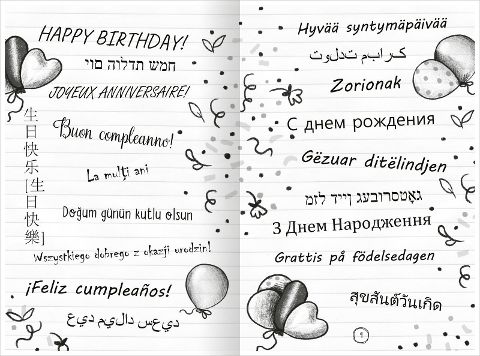 HAPPY BIRTHDAY!
JOYEUX ANNIVERSAIRE!
生日快乐 [生日快樂]
Buon compleanno!
La mulți ani
Doğum günün kutlu olsun
Wszystkiego dobrego z okazji urodzin!
¡Feliz cumpleaños!
Hyvää syntymäpäivää
Zorionak
С днем рождения
Gëzuar ditëlindjen
З Днем Народження
Grattis på födelsedagen
สุขสันต์วันเกิด